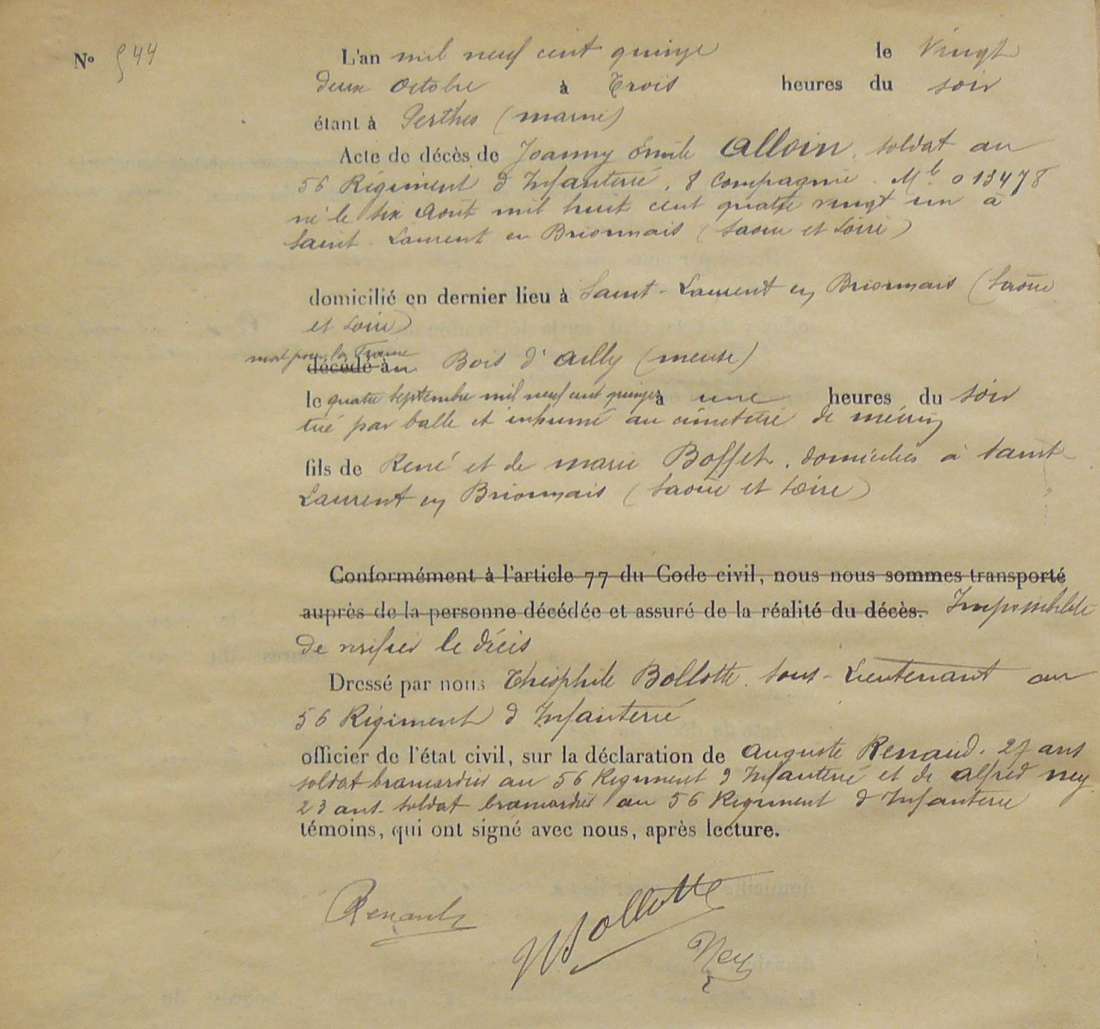 N° 544
L'an mil neuf cent quinze le Vingt
deux Octobre à Trois heures du soir
étant à Perthes (marne)
Acte de décès de Joanny Emile Alloin, soldat au
56 Régiment d'Infanterie, 8 Compagnie. Mle 013478
né le six Août mil huit cent quatre vingt un à
Saint-Laurent en Brionnais (Saone et Loire)
domicilié en dernier lieu à Saint-Laurent en Brionnais (Saône
et Loire)
mort pour la France
décédé au Bois d'Ailly (meuse)
le quatre septembre mil neuf cent quinze à une heures du soir
tué par balle et inhumé au cimetière de mécrin
fils de René et de marie Boffet, domiciliés à Saint-
Laurent en Brionnais (Saône et Loire)
Conformément à l'article 77 du Code civil, nous nous sommes transporté
auprès de la personne décédée et assuré de la réalité du décès. Impossibilité
de vérifier le décès
Dressé par nous Théophile Bollotte, Sous-Lieutenant au
56 Régiment d'Infanterie
officier de l'état civil, sur la déclaration de Auguste Renaud, ans
soldat brancardier au 56 Régiment d'Infanterie et de Alfred Ney
23 ans soldat brancardier au 56 Régiment d'Infanterie
témoins, qui ont signé avec nous, après lecture.
Bollotte
Ney